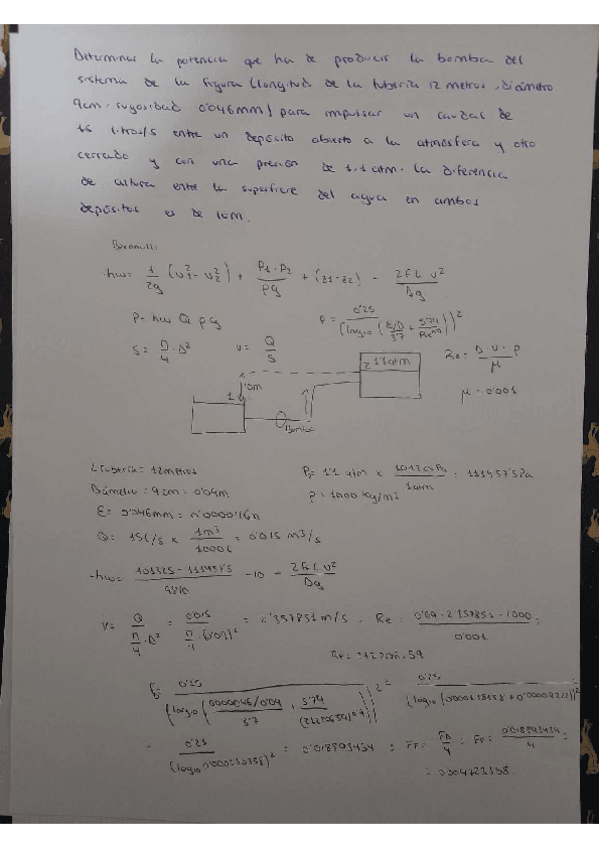 Determinar la potencia que ha de producir la bomba del
sistema de la figura (longitud de la tubería 12 metros, diámetro
9cm, rugosidad 0'046mm) para impulsar un caudal de
15 litros/s entre un depósito abierto a la atmósfera y otro
cerrado y con una presión de 1.1 atm. La diferencia
de altura entre la superficie del agua en ambos
depósitos es de 10m.
-hw= 1/2g (v1²- v2²) + P1-P2/ρg + (z1-z2) - 2fLv²/Dg
P= hw Q ρg
f= 0'25/[log10 (E/D/3'7 + 5'74/Re^0'9)]²
S= π/4 · D²
v= Q/S
Re= D v · ρ/μ
μ= 0'001
2 1'1atm
10m
1
Bomba
L tubería= 12 metros
P2= 1'1 atm x 101325Pa/1atm = 111457'5Pa
Diámetro= 9cm= 0'09m
ρ= 1000 kg/m³
E= 0'046mm= 0'000046m
Q= 15L/s x 1m³/1000L = 0'015 m³/s
-hw= 101325-111457'5/9810 -10 - 2fLv²/Dg
v= Q/π/4·D² = 0'015/π/4·(0'09)² = 2'357851 m/s. Re= 0'09·2'357851·1000/0'001 =
Re= 212206.59
0'25/(log10 (0'000046/0'09/3'7 + 5'74/(212206'59)^0'9))² = 0'25/(log10 (0'000138138 + 0'00009222))²
= 0'25/(log10 )² = 0'018893434 ; FF= FD/4 ; FF= 0'018893434/4 =
= 0'004723358.